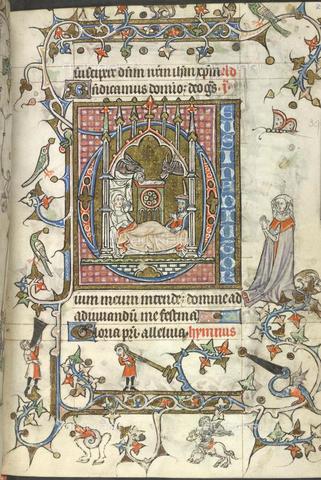 dn̄m nr̄m ih̄m xp̄m
B̄n̄dicamus domino deo
EUS IN ADIUTOR
ium meum intende domine ad
adiuuandū me festina
Gloria pr̄i alleluia hymnus